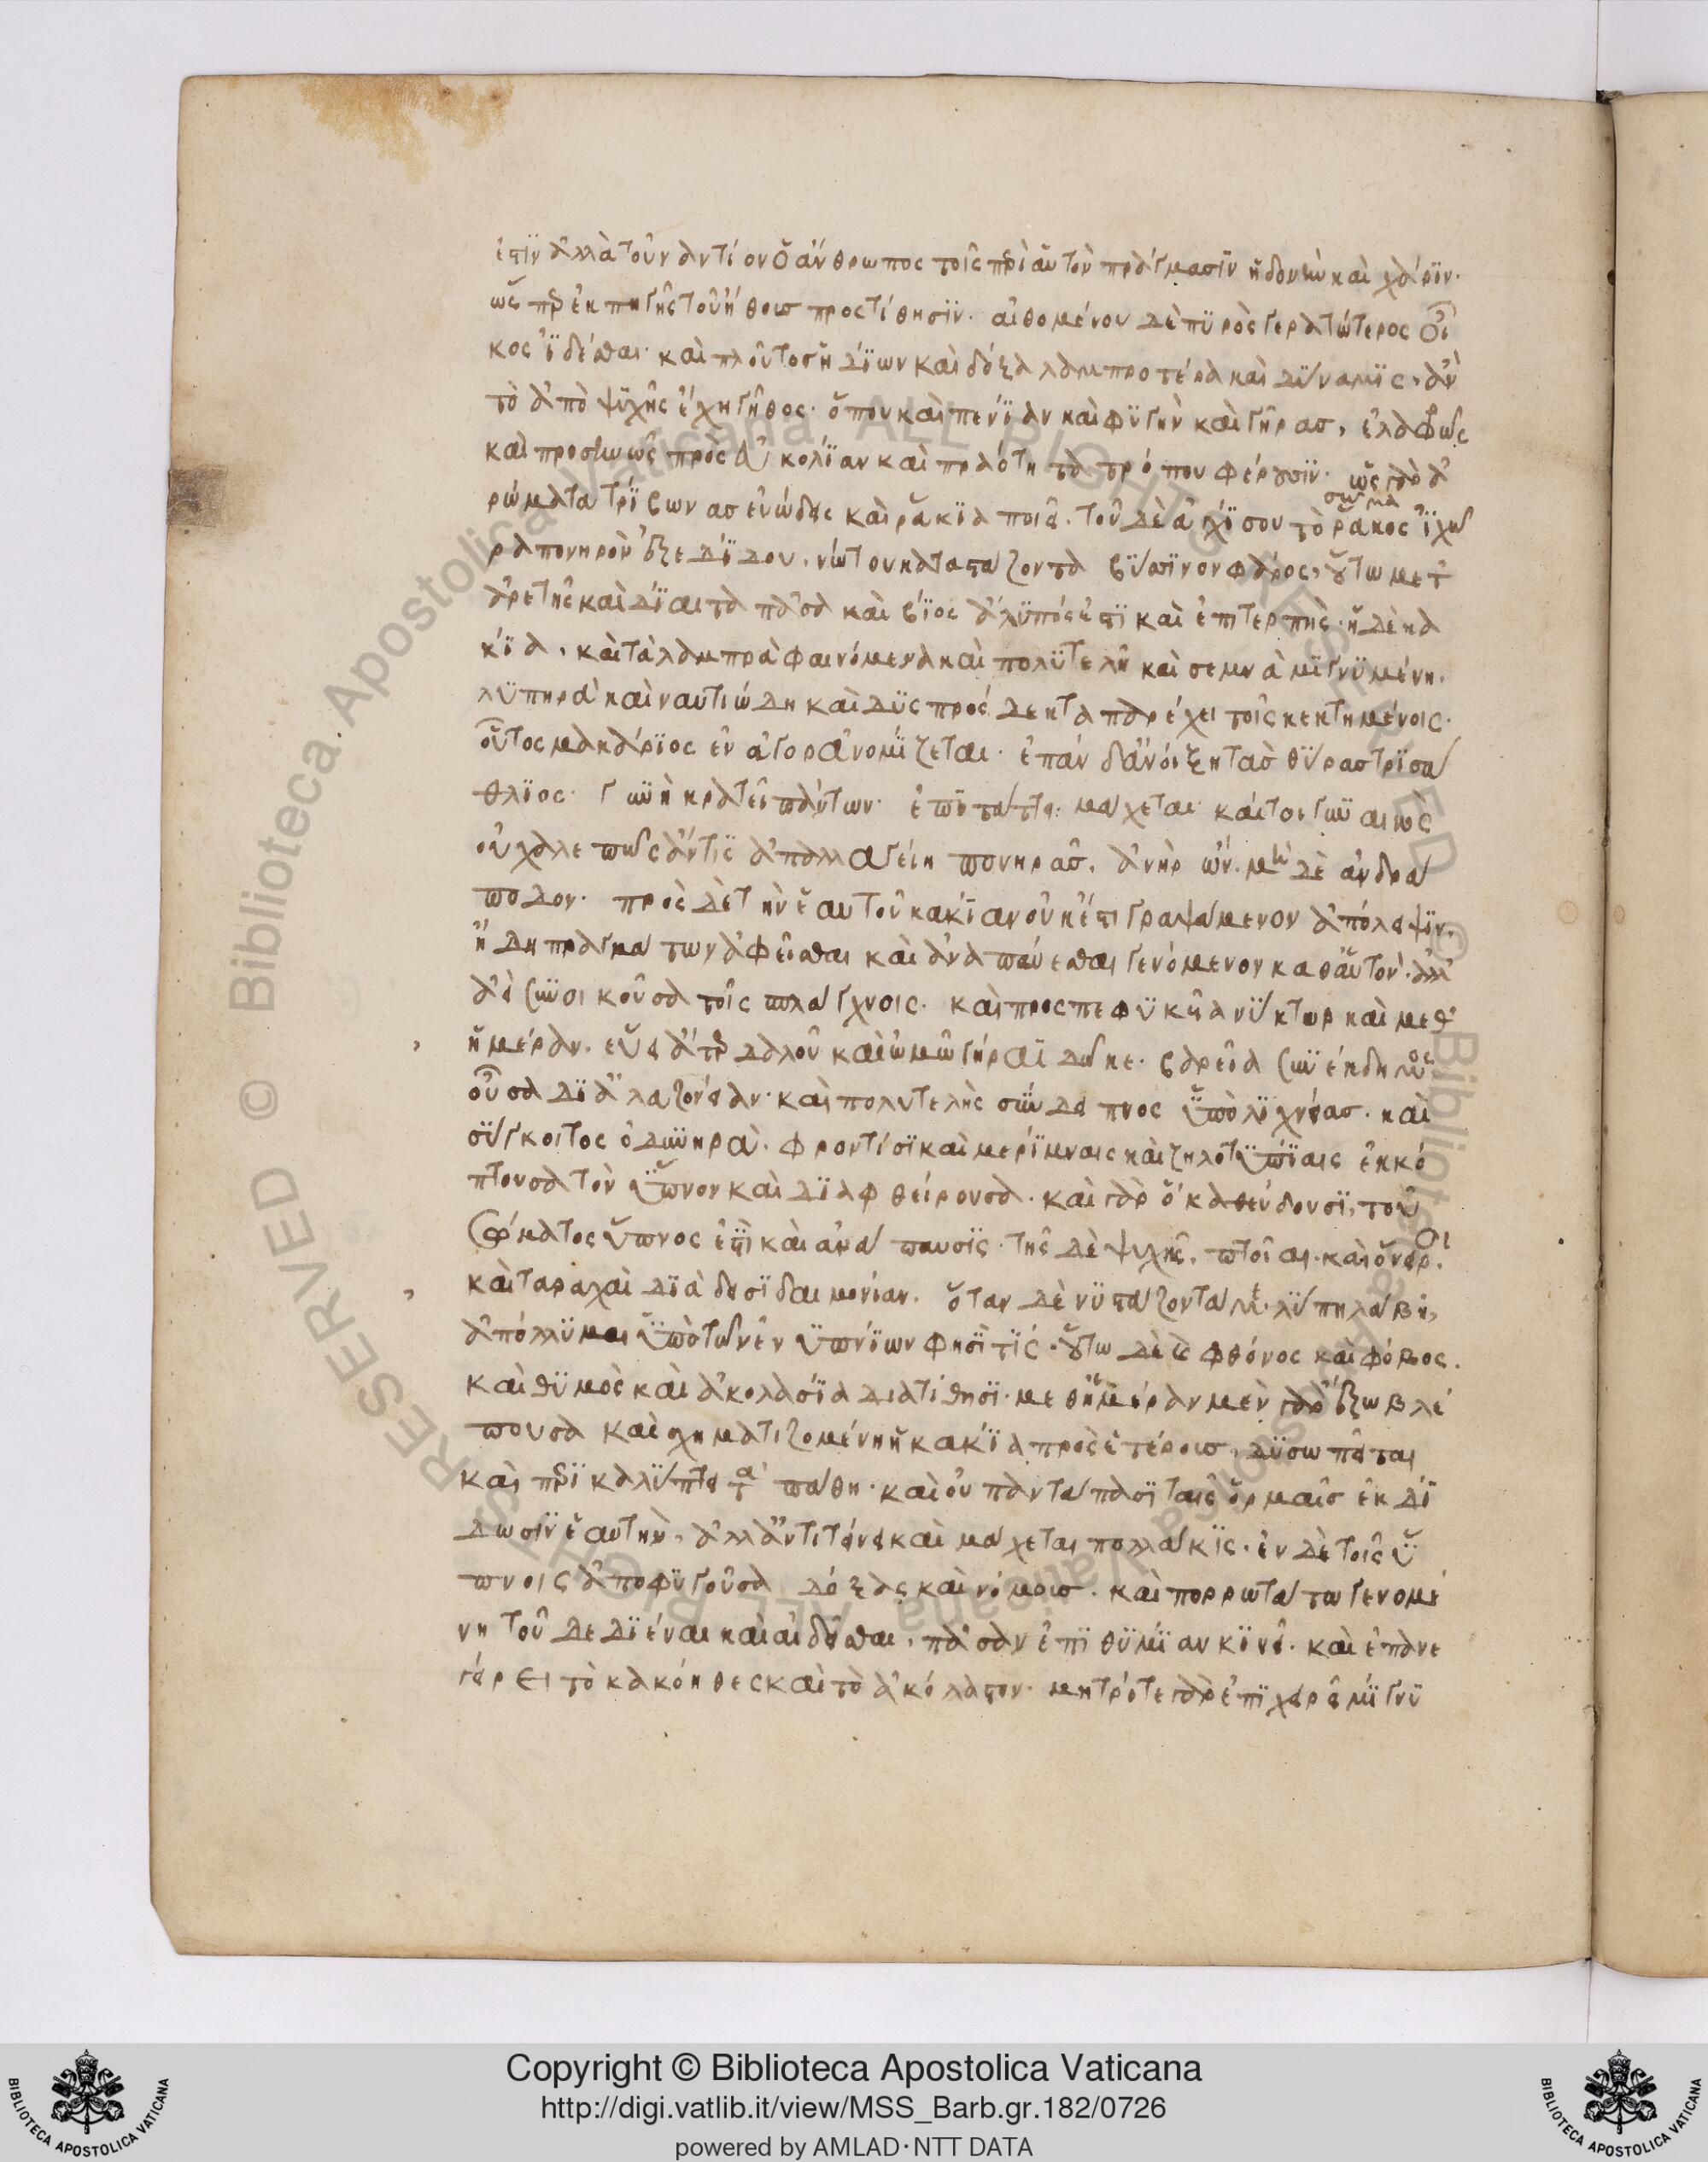 ἐστὶν ἀλλὰ τοὐναντίον ὁ ἄνθρωπος τοῖς περὶ αὑτὸν πράγμασιν ἡδονὴν καὶ χάριν·
ὥσπερ ἐκ πηγῆς τοῦ ἤθους προστίθησιν· αἰθομένου δὲ πυρὸς γεραρώτερος οἶ
κος ἰδέσθαι· καὶ πλοῦτος ἡδίων καὶ δόξα λαμπροτέρα καὶ δύναμις, ἂν
τὸ ἀπὸ ψυχῆς ἔχῃ γῆθος· ὅπου καὶ πενίαν καὶ φυγὴν καὶ γῆρας, ἐλαφρῶς
καὶ προσηνῶς πρὸς εὐκολίαν καὶ πραότητα τρόπου φέρουσιν· ὡς γὰρ ἀ
ρώματα τρίβωνας εὐώδεις καὶ ῥάκια ποιεῖ· τοῦ δὲ ἀγχίσου τὸ ῥάκος ἰχῶ
σῶμα
ρα πονηρὸν ἐξεδίδου, νώτου καταστάζοντα βύσσινον φάρος, οὕτω μετ
ἀρετῆς καὶ δίαιτα πᾶσα καὶ βίος ἄλυπός ἐστι καὶ ἐπιτερπής· ἡ δὲ κα
κία, καὶ τὰ λαμπρὰ φαινόμενα καὶ πολυτελῆ καὶ σεμνὰ μιγνυμένη,
λυπηρὰ καὶ ναυτιώδη καὶ δυσπρόσδεκτα παρέχει τοῖς κεκτημένοις·
οὗτος μακάριος ἐν ἀγορᾷ νομίζεται· ἐπὰν δ' ἀνοίξῃ τὰς θύρας τρισά
θλιος· γυνὴ κρατεῖ πάντων· ἐπιτάττει· μάχεται· καίτοι γυναικὸς
οὐ χαλεπῶς ἄν τις ἀπαλλαγείη πονηρᾶς, ἀνὴρ ὤν· μὴ δὲ ἀνδρά
ποδον· πρὸς δὲ τὴν ἑαυτοῦ κακίαν οὐκ ἔστι γραψάμενον ἀπόλειψιν,
ἤδη πραγμάτων ἀφεῖσθαι καὶ ἀναπαύεσθαι γενόμενον καθ' αὑτόν· ἀλλ'
ἀεὶ συνοικοῦσα τοῖς σπλάγχνοις· καὶ προσπεφυκυῖα νύκτωρ καὶ μεθ'
ἡμέραν, εὕει ἄτερ δαλοῦ καὶ ὠμῷ γήραϊ δῶκε· βαρεῖα συνέκδημος
οὖσα δι' ἀλαζονείαν· καὶ πολυτελὴς σύνδειπνος ὑπὸ λιχνείας· καὶ
σύγκοιτος ὀδυνηρά· φροντίσι καὶ μερίμναις καὶ ζηλοτυπίαις ἐκκό
πτουσα τὸν ὕπνον καὶ διαφθείρουσα· καὶ γὰρ ὃ καθεύδουσι, τοῦ
σώματος ὕπνος ἐστὶ καὶ ἀνάπαυσις· τῆς δὲ ψυχῆς, πτοῖαι· καὶ ὄνειροι·
καὶ ταραχαὶ διὰ δεισιδαιμονίαν· ὅταν δὲ νυστάζοντά με λύπη λάβῃ,
ἀπόλλυμαι ὑπὸ τῶν ἐνυπνίων φησί τις· οὕτω δὲ καὶ φθόνος καὶ φόβος·
καὶ θυμὸς καὶ ἀκολασία διατίθησι· μεθ' ἡμέραν μὲν γὰρ ἔξω βλέ
πουσα καὶ σχηματιζομένη ἡ κακία πρὸς ἑτέρους, δυσωπεῖται
καὶ περικαλύπτει τὰ πάθη· καὶ οὐ παντάπασι ταῖς ὁρμαῖς ἐκδί
δωσιν ἑαυτήν, ἀλλ' ἀντιτείνει καὶ μάχεται πολλάκις· ἐν δὲ τοῖς ὕ
πνοις ἀποφυγοῦσα δόξας καὶ νόμους· καὶ πορρωτάτω γενομέ
νη τοῦ δεδιέναι καὶ αἰδεῖσθαι, πᾶσαν ἐπιθυμίαν κινεῖ· καὶ ἐπανε
γείρει τὸ κακόηθες καὶ τὸ ἀκόλαστον· μητρί τε γὰρ ἐπιχειρεῖ μίγνυ
Copyright © Biblioteca Apostolica Vaticana
http://digi.vatlib.it/view/MSS_Barb.gr.182/0726
powered by AMLAD·NTT DATA